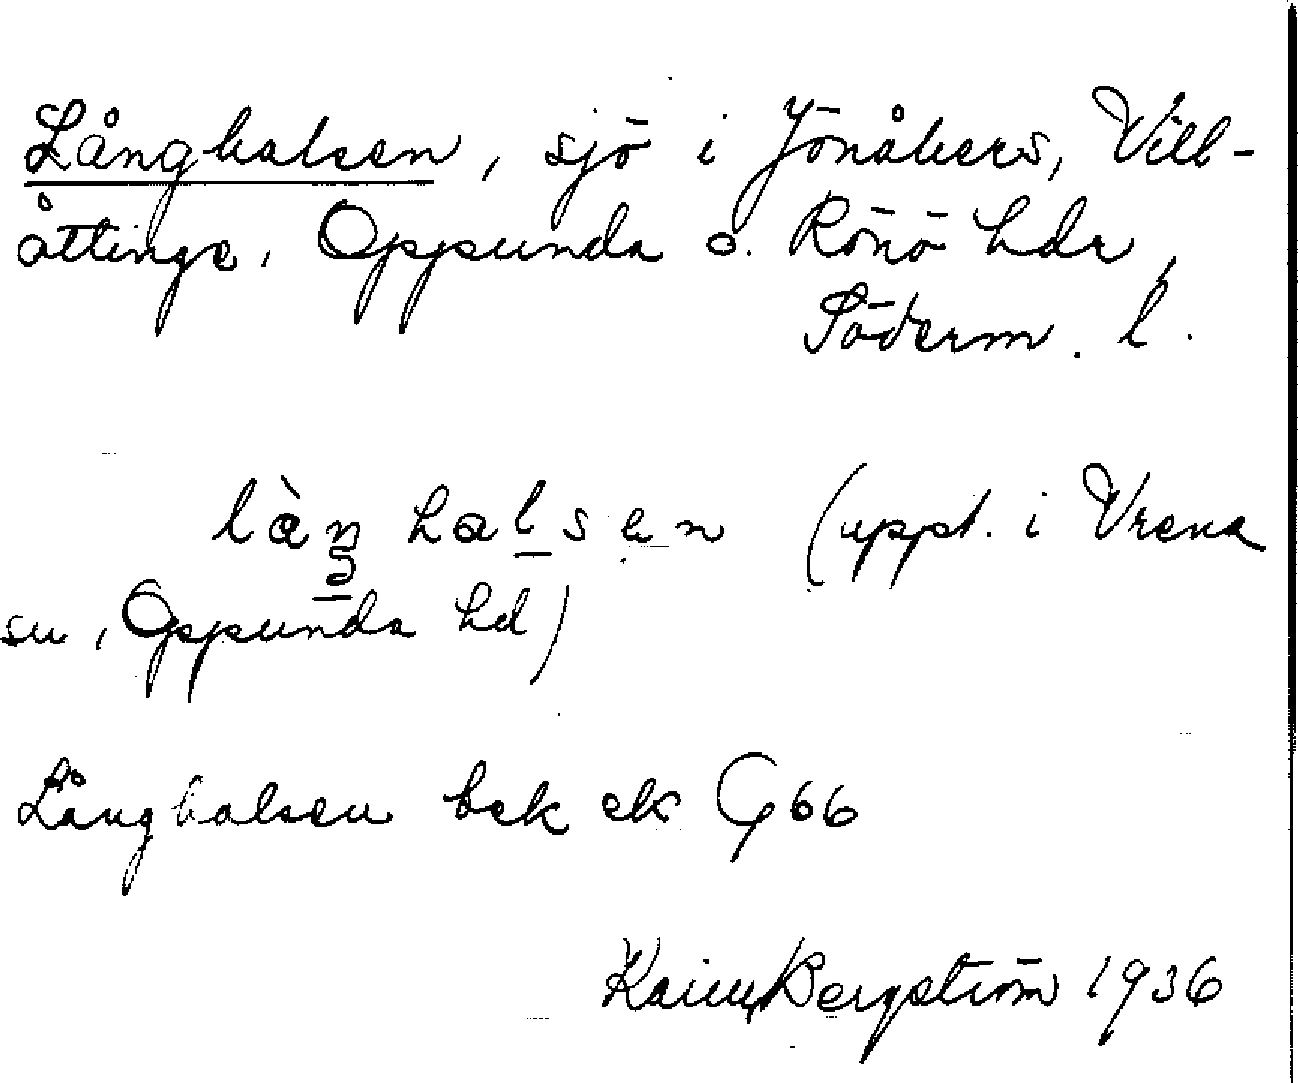 Långhalsen, sjö i Jönåkers, Vill-
åttinge, Oppunda o. Rönö hdr,
Söderm. l.
làŋ halsen (uppt. i Vrena
sn, Oppunda hd)
Långhalsen bek ek G 66
Bergström 1936